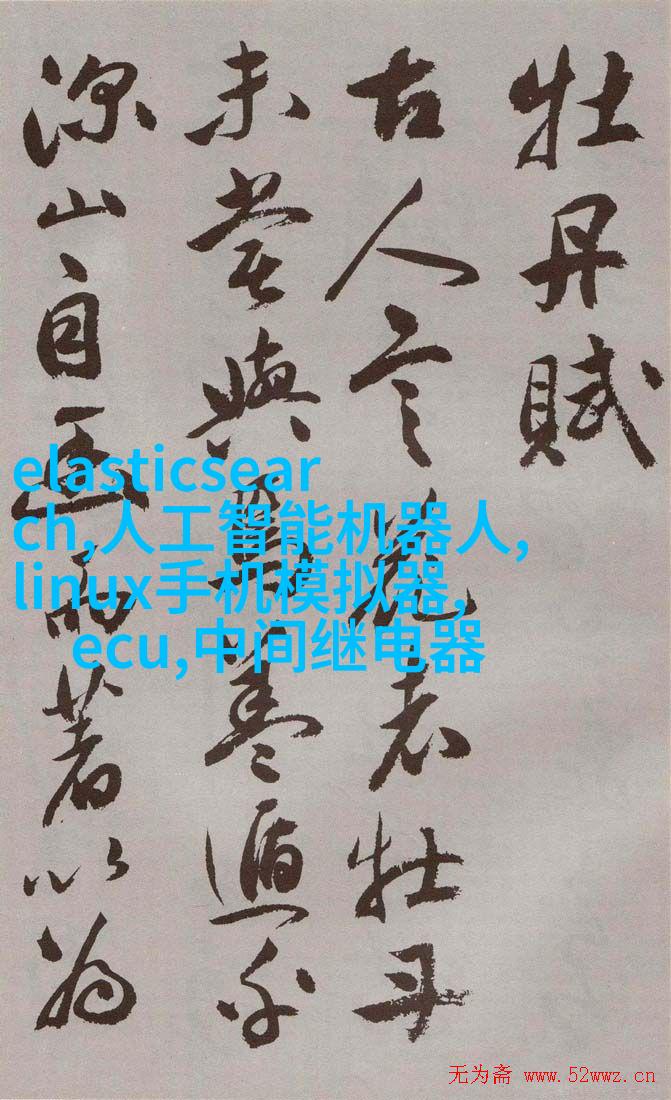 牡丹賦
古人言花者牡丹
未嘗與焉蓋遁於
深山自幽而著以為
elasticsear
ch,人工智能机器人,
linux手机模拟器,
ecu,中间继电器
无为斋 www.52wwz.cn